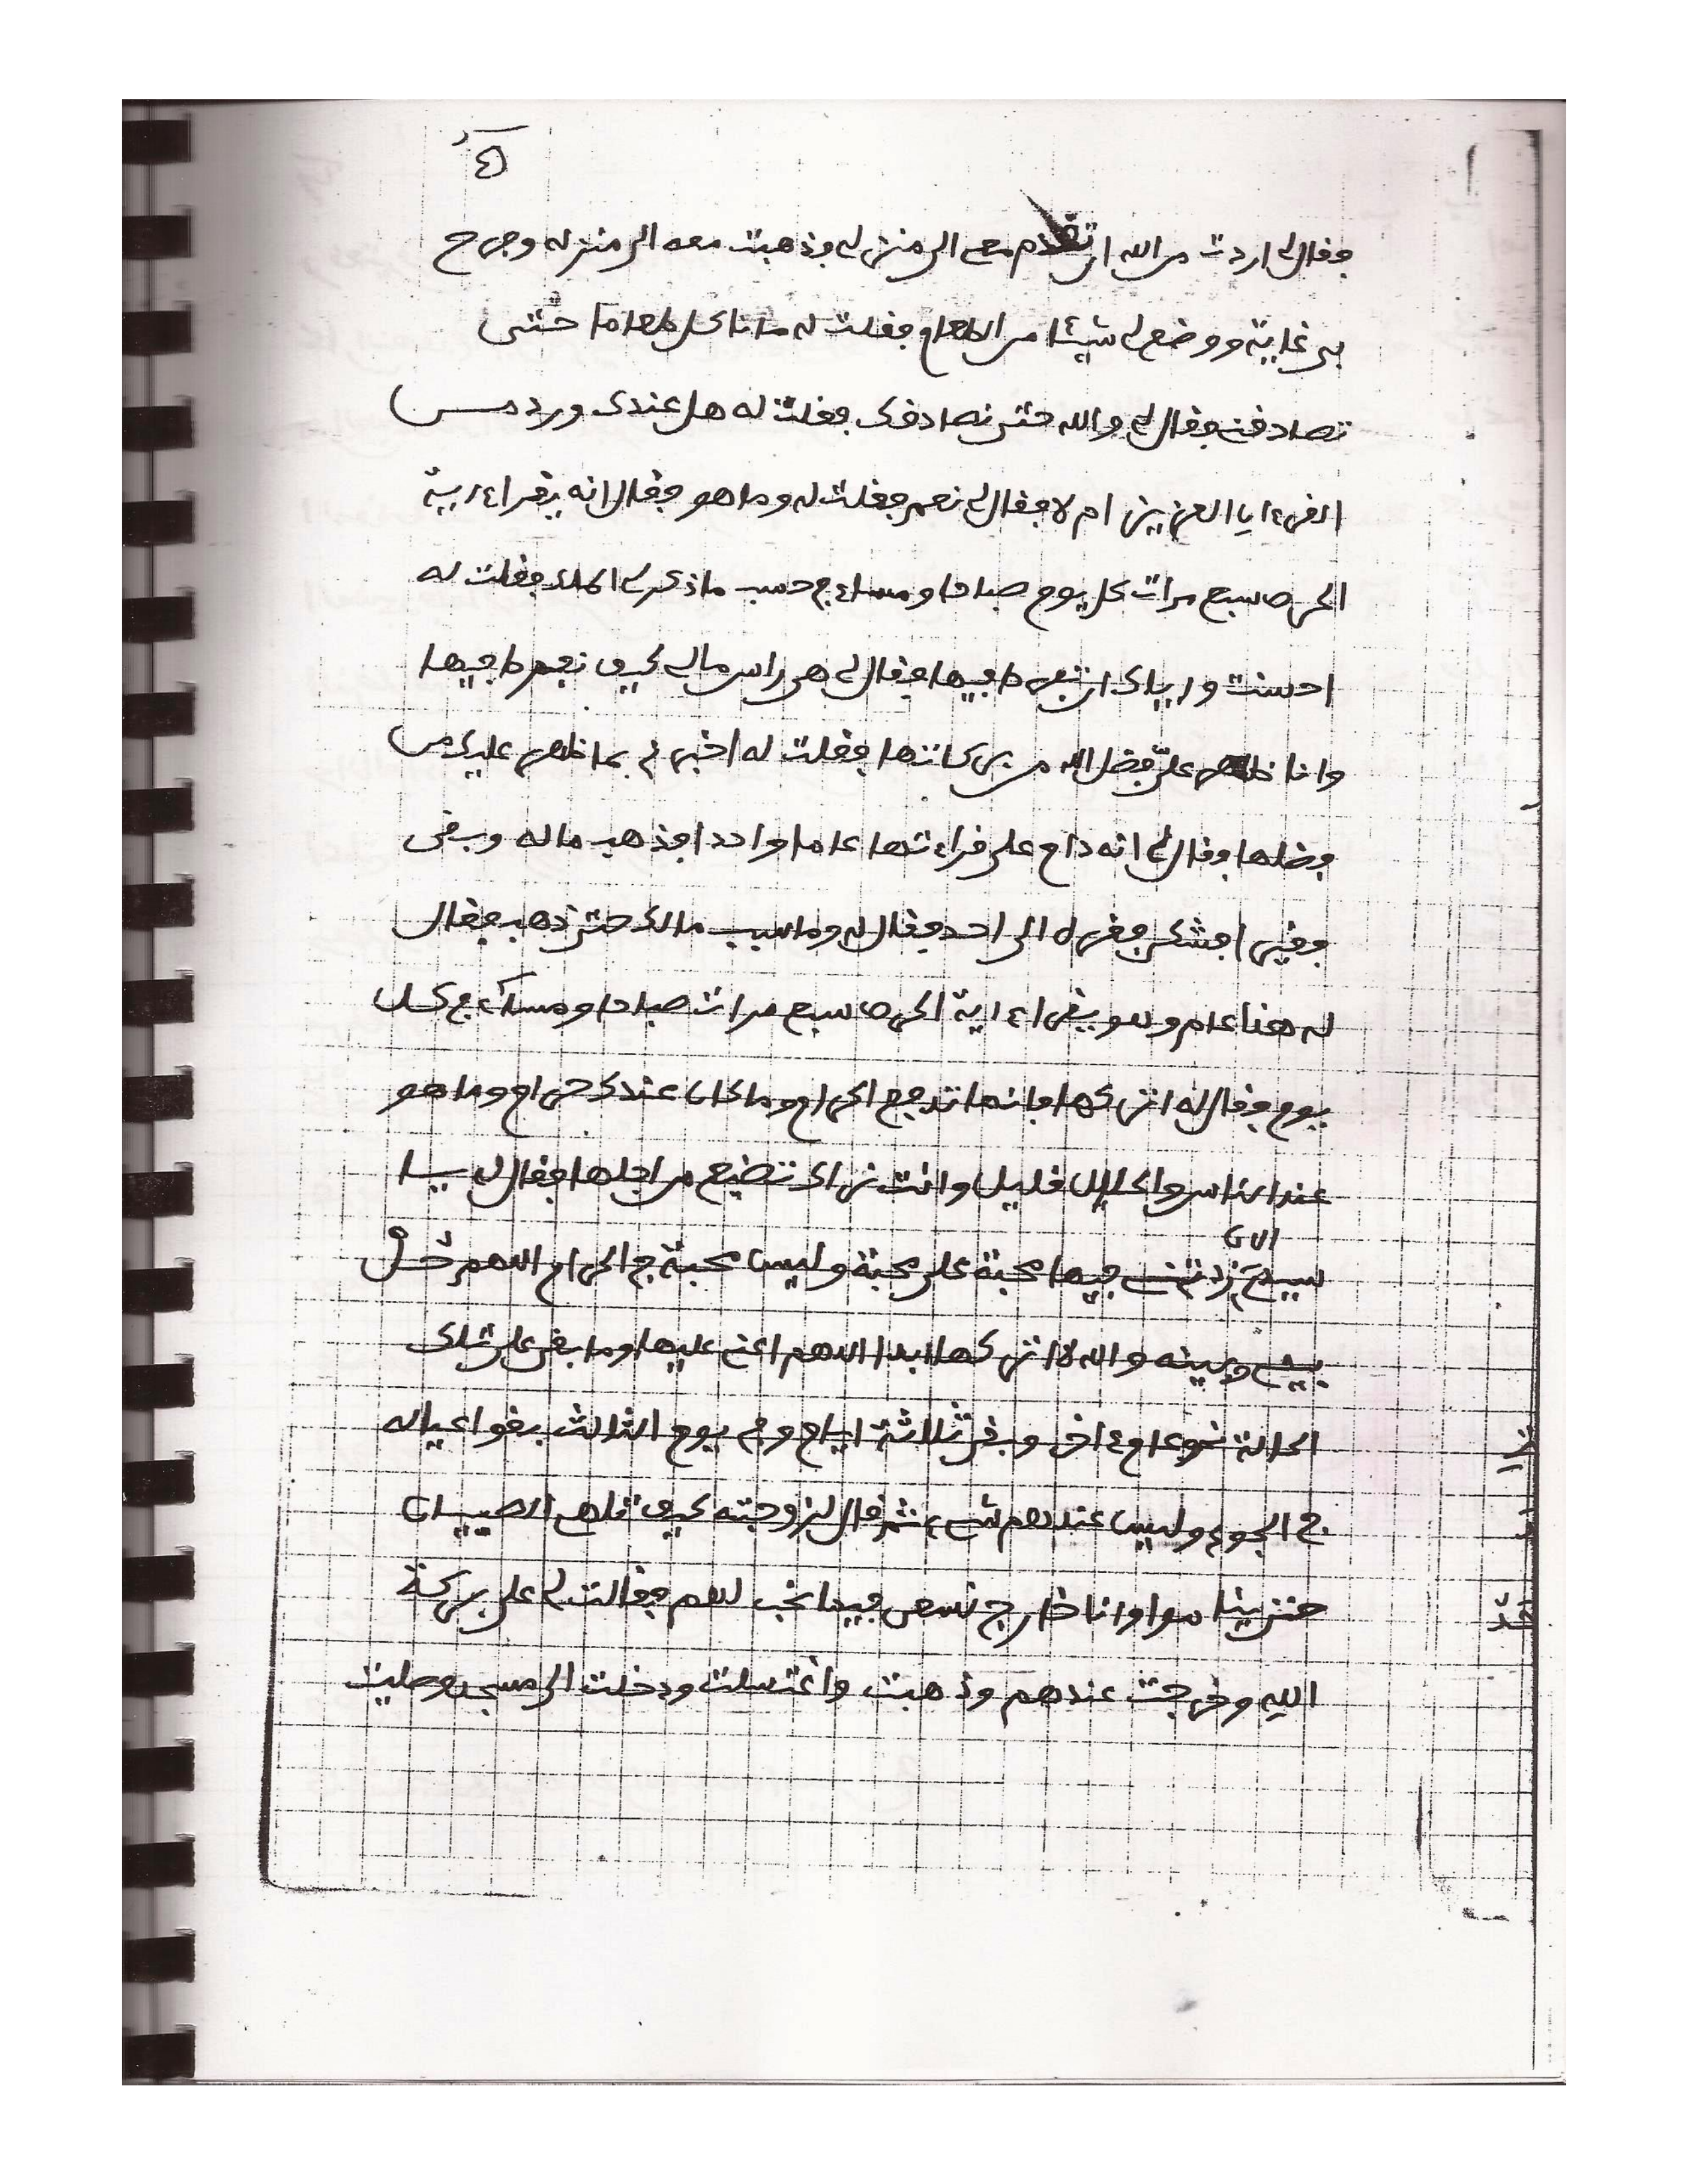 فقال لي اردت من الله ان تقدم معي الى منزلي فذهبت معه الى منزله وفرح
بي غاية ووضع لي شيئا من الطعام فقلت له ما ناكل طعاما حتى
تصادقني فقال لي والله حتى نصادقك فقلت له هل عندك ورد من
القرءان العزيز ام لا فقال لي نعم فقلت له وما هو فقال انه يقرا ءاية
الحرص سبع مرات كل يوم صباحا ومساء فحسب ما ذكر لي الملك فقلت له
احسنت واياك ان تفرط فيها فقال لي هي راس مالي كيف نفرط فيها
وانا ظهر عليّ فضل الله من بركاتها فقلت له اخبرني بما ظهر عليك من
فضلها وقال لي انه دام على قراءتها عاما واحدا فذهب ماله وبقى
فقيرا فشكى فقره الى احد فقال له وما سبب مالك حتى ذهب فقال
له هذا عام وهو يقرا ءاية الحرص سبع مرات صباحا ومساء في كل
يوم فقال له اتركها فانها تدفع الحرام وما كان عندك حرام وما هو
عند الناس والحلال قليل وانت نراك تضيع من اجلها فقال له يا
سيدي الان زدتني فيها محبة على محبة وليس محبة في الحرام اللهم حُلْ
بيني وبينه والله لا اتركها ابدا اللهم اعني عليها وما بقى على تلك
الحالة نحو عام ءاخر وبقى ثلاثة ايام وفي يوم الثالث بقوا عياله
في الجوع وليس عندهم شيء ثم قال لزوجته كيف تلهي الصبيان
حتى وانا خارج نسعى فيما نجب لهم فقالت لي على بركة
الله وخرجت عندهم وذهبت واغتسلت ودخلت الى مسجد وصليت